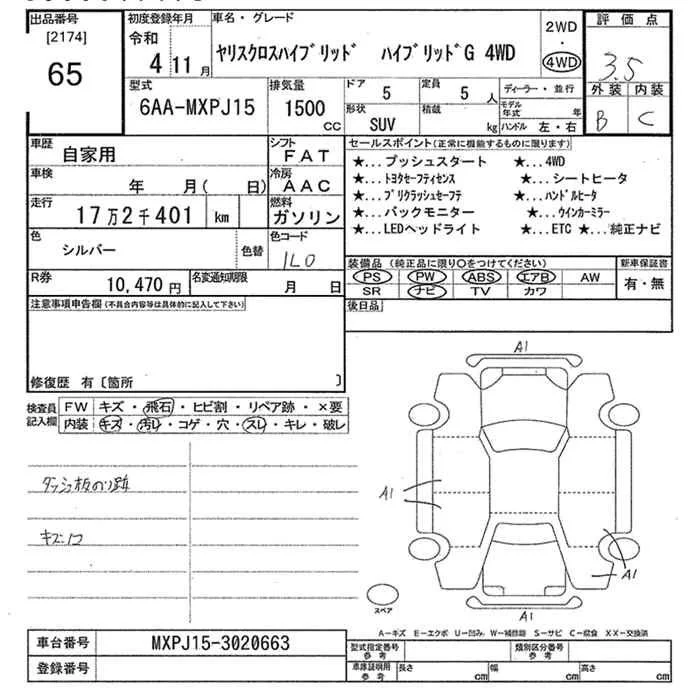 出品番号
[2174]
65
初度登録年月
令和
4 11 月
車名・グレード
ヤリスクロスハイブリッド ハイブリッドG 4WD
2WD
・
4WD
評価点
3.5
外装 内装
B C
型式
6AA-MXPJ15
排気量
1500
CC
ドア
5
定員
5 人
形状
SUV
積載
kg
ディーラー・並行
モデル年式 年
ハンドル 左・右
車歴
自家用
シフト
FAT
車検
年 月( 日)
冷房
AAC
走行
17万2千401 km
燃料
ガソリン
色
シルバー
色替
色コード
1L0
R券
10,470 円
名変通知期限
月 日
セールスポイント(正常に機能するものに限ります)
★...プッシュスタート ★...4WD
★...トヨタセーフティセンス ★...シートヒータ
★...プリクラッシュセーフテ ★...ハンドルヒータ
★...バックモニター ★...ウインカーミラー
★...LEDヘッドライト ★...ETC ★...純正ナビ
装備品 (純正品に限り○をつけてください)
PS PW ABS エアB AW
SR ナビ TV カワ
新車保証書
有・無
後日品
注意事項申告欄(不具合内容等は具体的に記入して下さい)
修復歴 有〔箇所 〕
検査員記入欄
FW キズ・飛石・ヒビ割・リペア跡・×要
内装 キズ・汚れ・コゲ・穴・スレ・キレ・破レ
ダッシュ板のり跡
キズ、コ
A1
A1
A1
A1
スペア
A-キズ E-エクボ U-凹み W-補修跡 S-サビ C-腐食 XX-交換済
車台番号
MXPJ15-3020663
登録番号
型式指定番号
参考
類別区分番号
参考
車庫証明用
参考
長さ cm 幅 cm 高さ cm